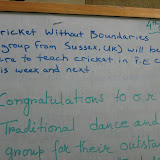 4th
ricket Without Boundaries
group from Sussex, UK) will be
ere to teach cricket in P.E C
is week and next.
Congratulations to o.r
Traditional dance and
group for their outsta